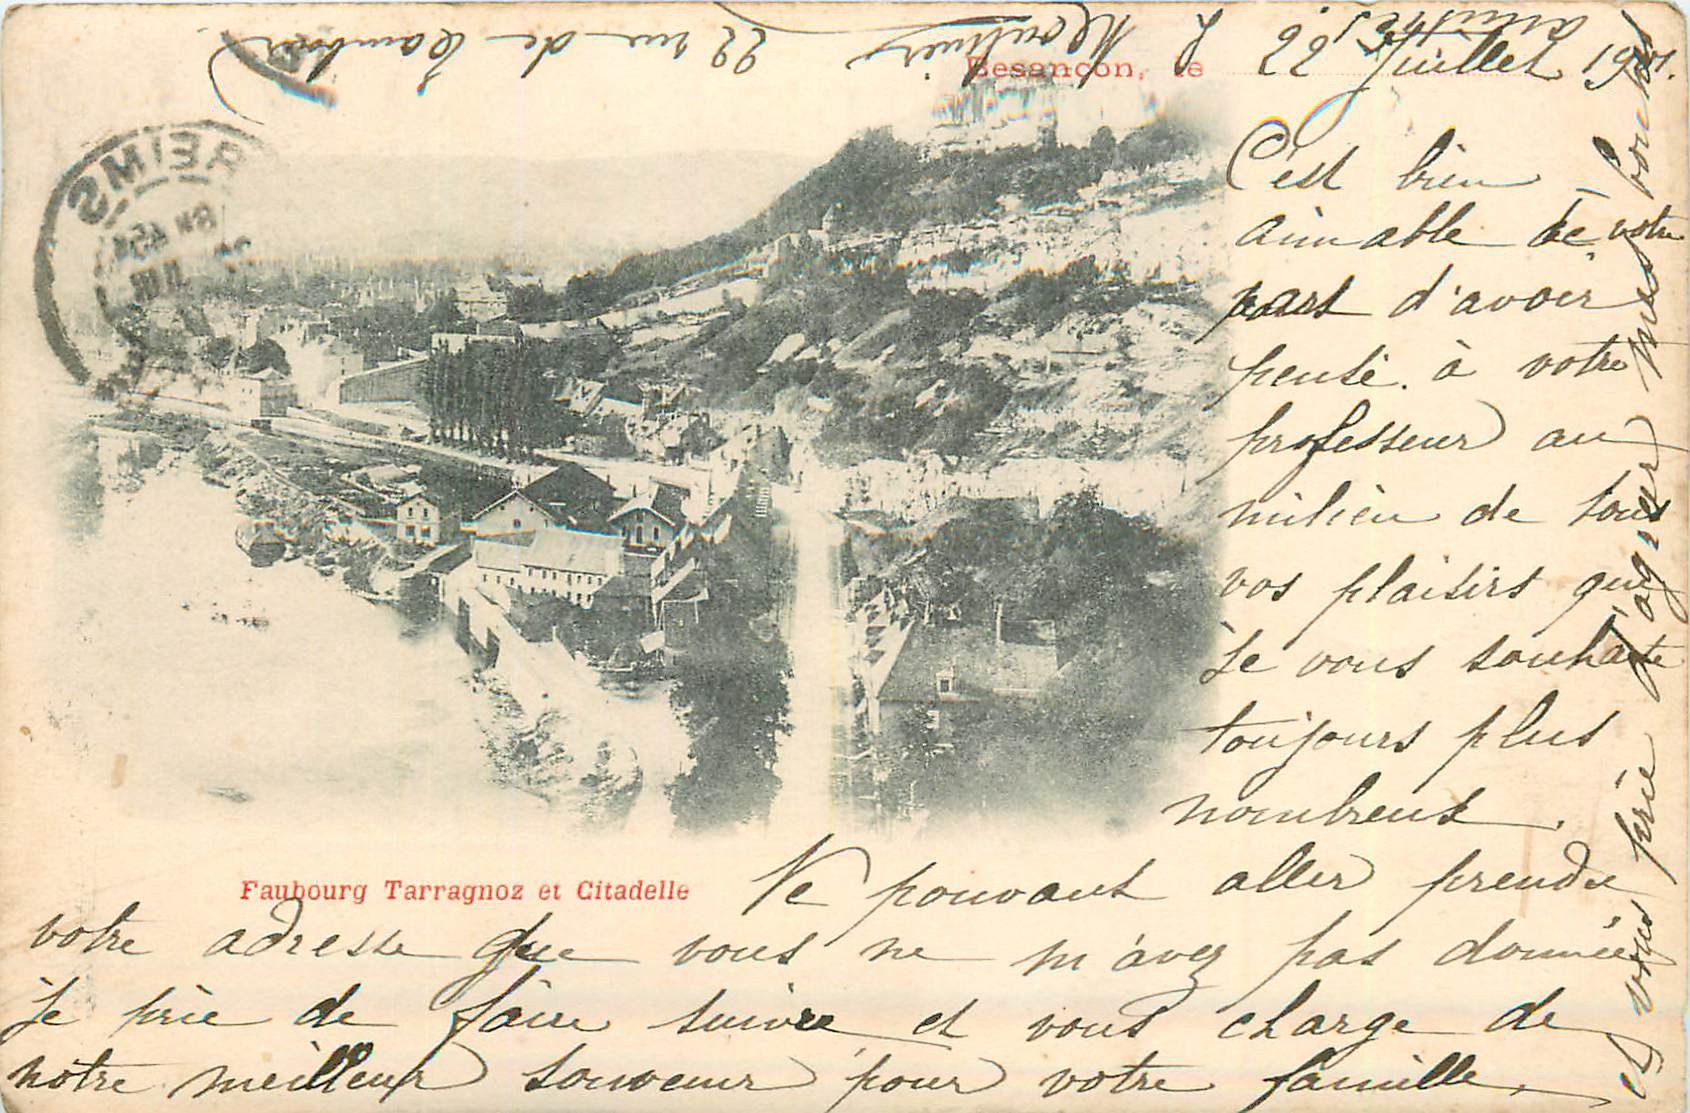 Besançon, le 22 Juillet 1901.
C'est bien
aimable de votre
part d'avoir
pensé à votre
professeur au
milieu de tous
vos plaisirs que
je vous souhaite
toujours plus
nombreux.
Faubourg Tarragnoz et Citadelle
Ne pouvant aller prendre
votre adresse que vous ne m'avez pas donnée
je prie de faire suivre et vous charge de
notre meilleur souvenir pour votre famille,
et vous prie d'agréer mes bons
amitiés
L Moulinier 22 rue de
REIMS